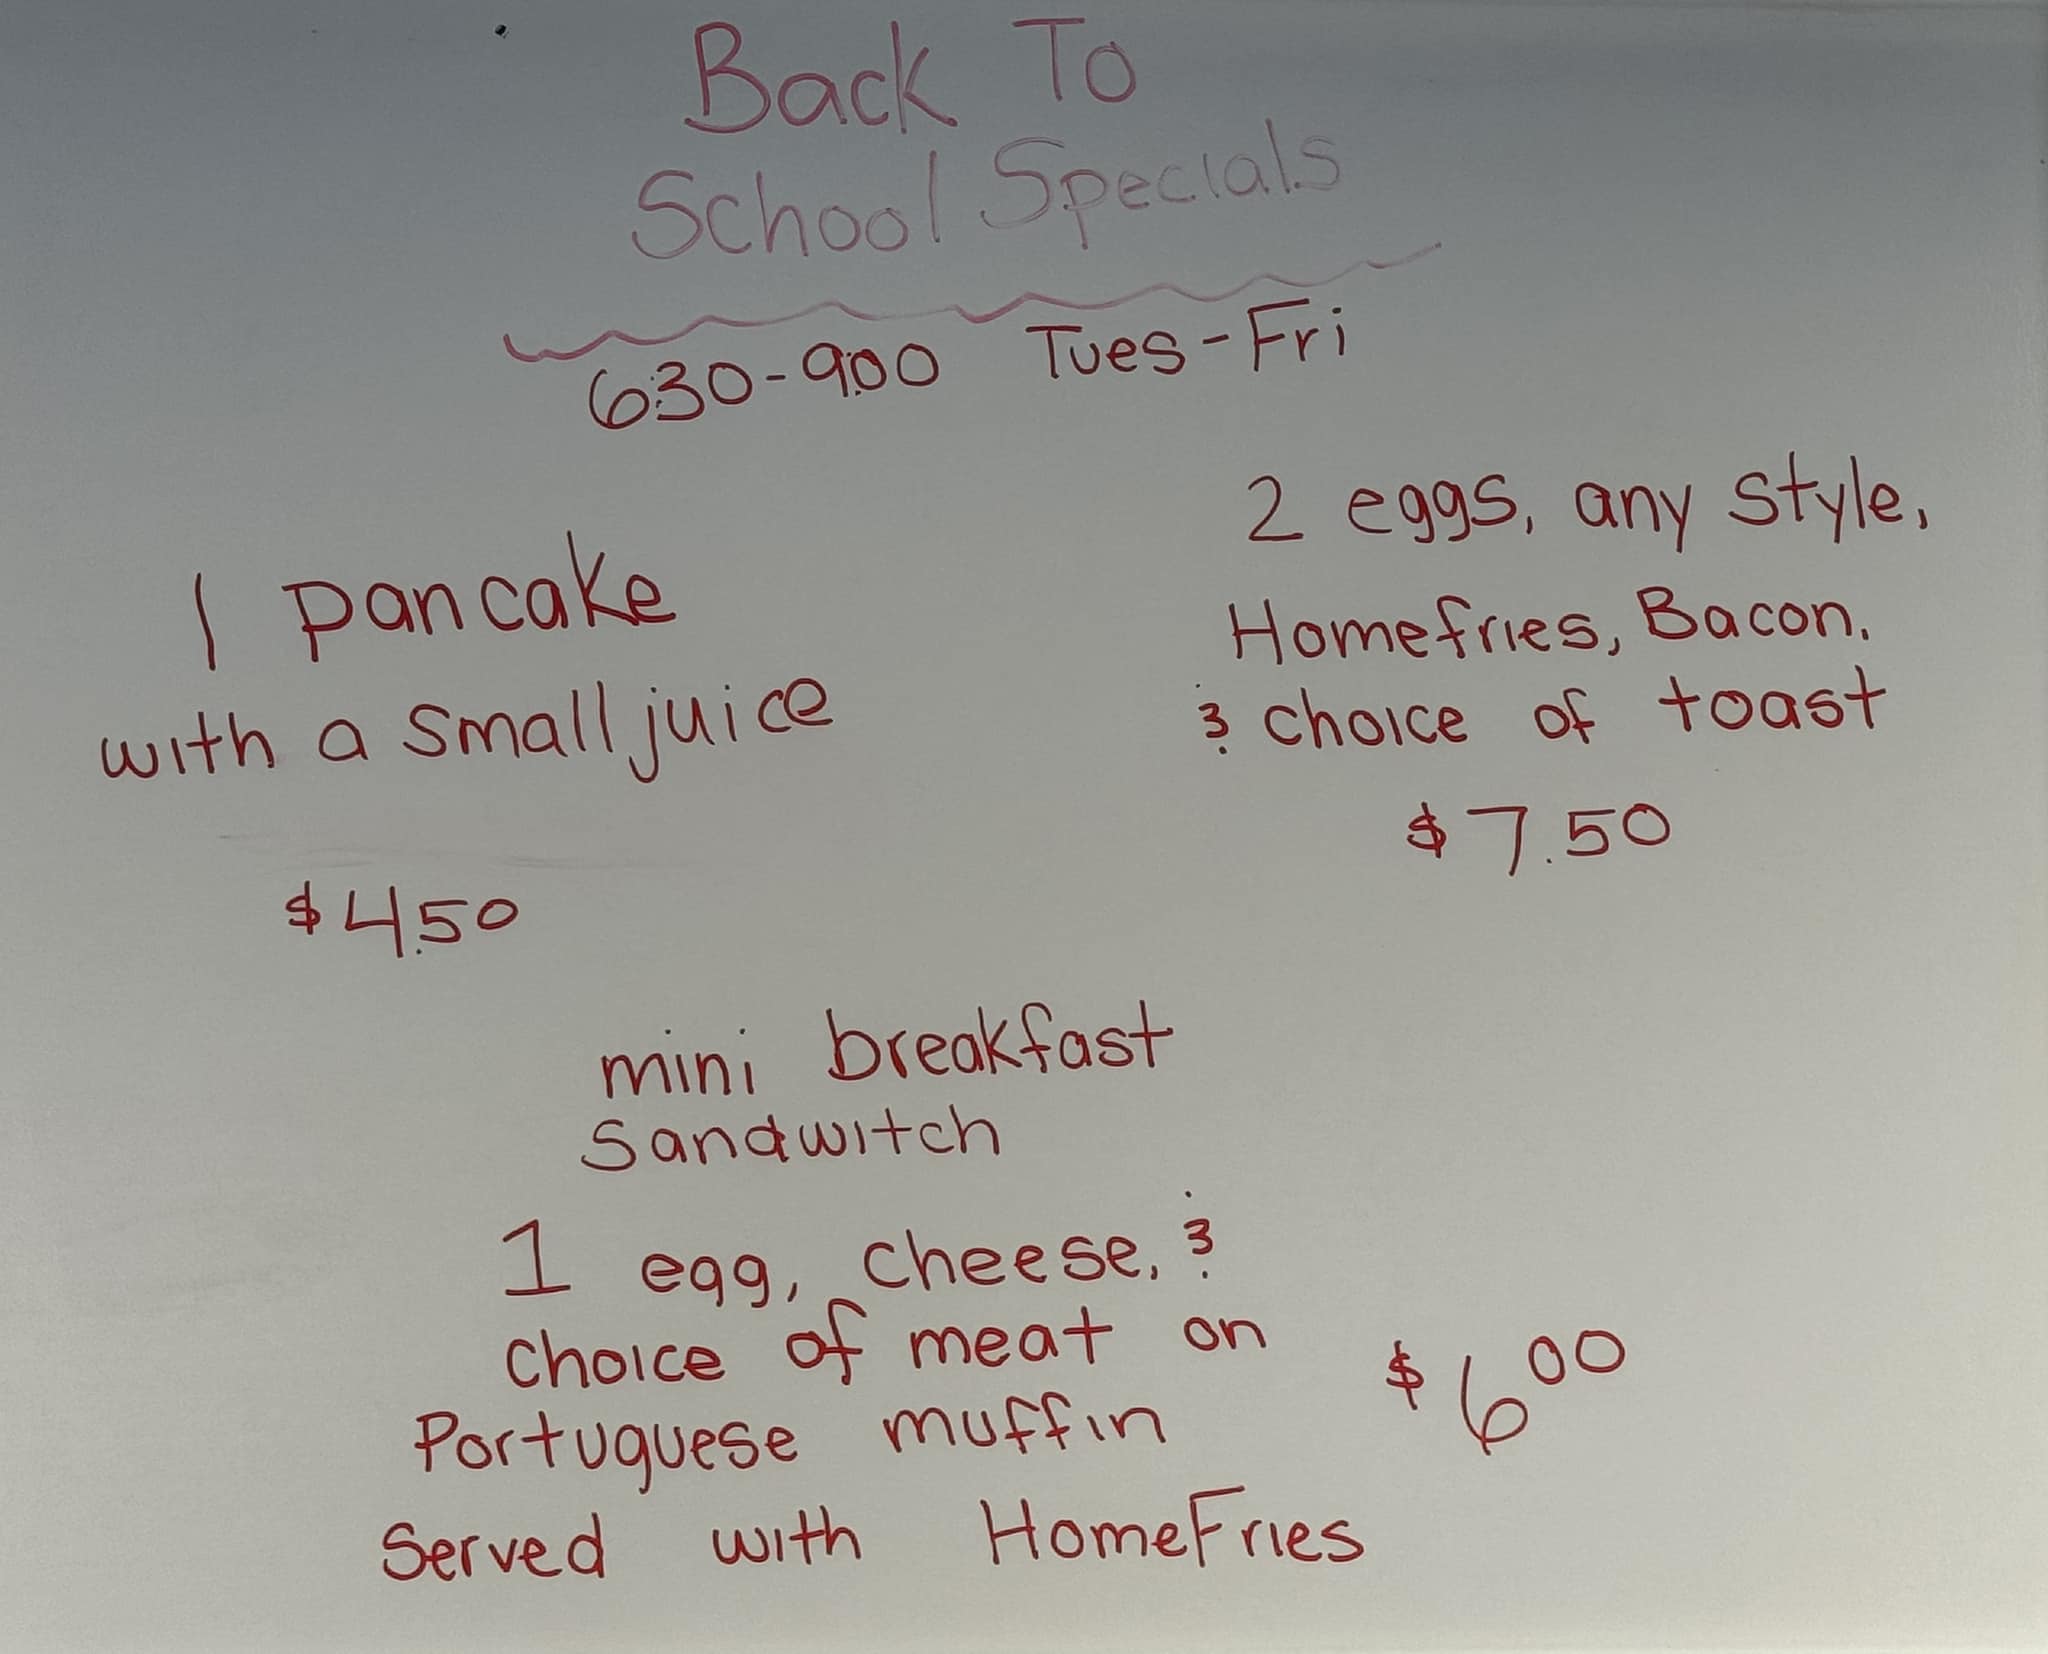 Back To
School Specials
6:30-9:00 Tues-Fri
1 pancake
with a small juice
$4.50
2 eggs, any style,
Homefries, Bacon,
& choice of toast
$7.50
mini breakfast
Sandwitch
1 egg, cheese, &
choice of meat on
Portuguese muffin
Served with HomeFries
$6.00